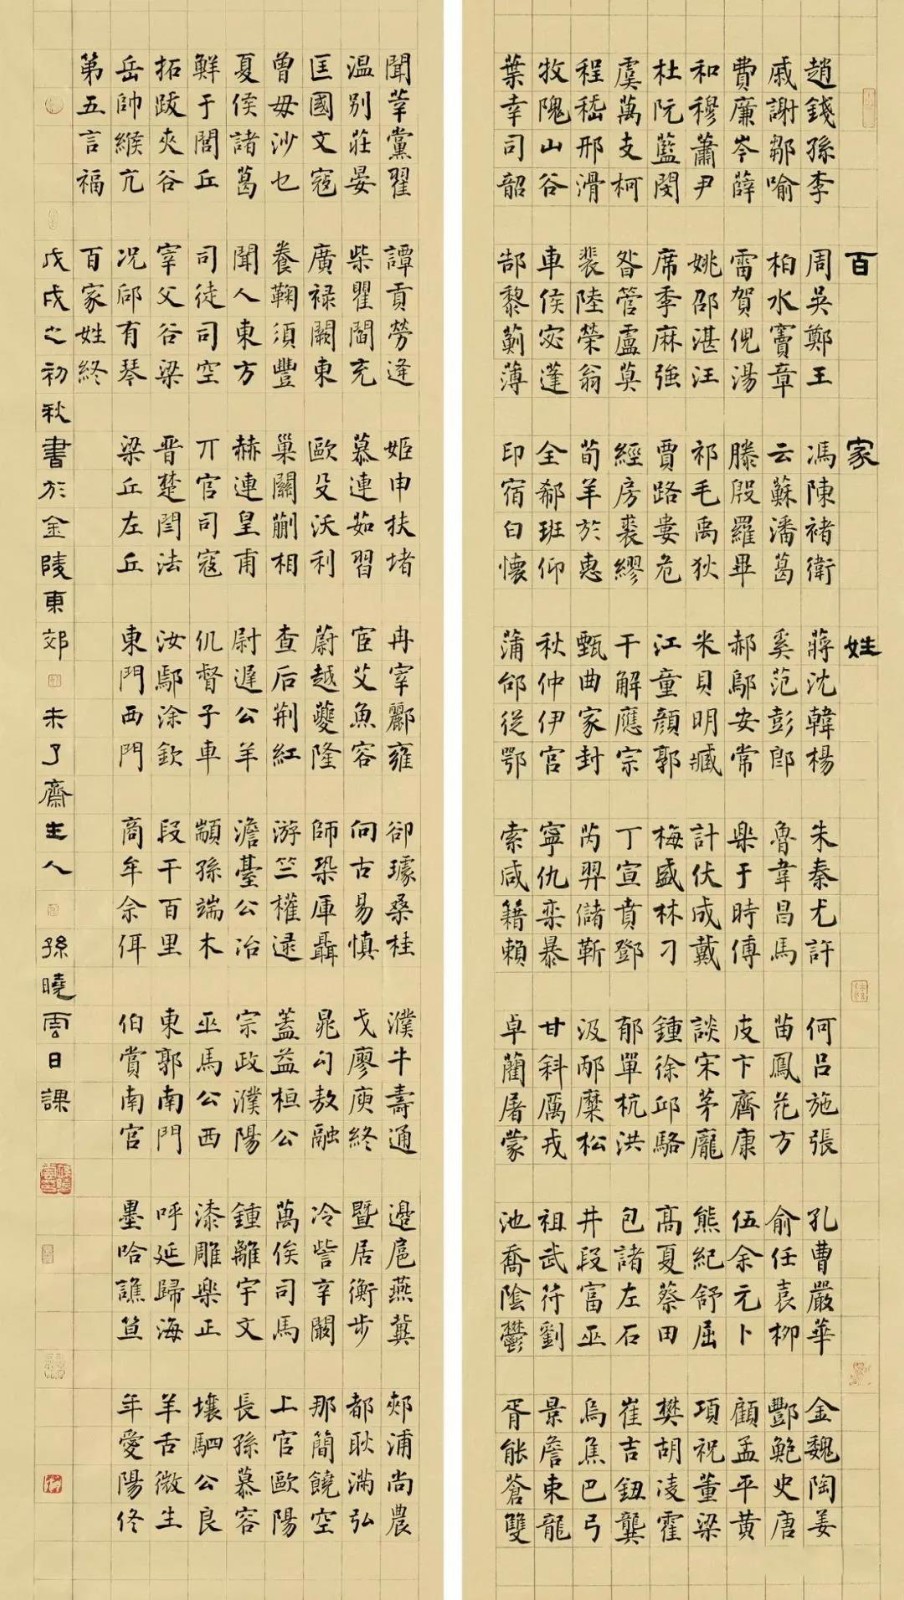 百家姓
趙錢孫李 周吳鄭王 馮陳褚衛 蔣沈韓楊 朱秦尤許 何呂施張 孔曹嚴華 金魏陶姜
戚謝鄒喻 柏水竇章 云蘇潘葛 奚范彭郎 魯韋昌馬 苗鳳花方 俞任袁柳 酆鮑史唐
費廉岑薛 雷賀倪湯 滕殷羅畢 郝鄔安常 樂于時傅 皮卞齊康 伍余元卜 顧孟平黃
和穆蕭尹 姚邵湛汪 祁毛禹狄 米貝明臧 計伏成戴 談宋茅龐 熊紀舒屈 項祝董梁
杜阮藍閔 席季麻強 賈路婁危 江童顏郭 梅盛林刁 鍾徐邱駱 高夏蔡田 樊胡凌霍
虞萬支柯 昝管盧莫 經房裘繆 干解應宗 丁宣賁鄧 郁單杭洪 包諸左石 崔吉鈕龔
程嵇邢滑 裴陸榮翁 荀羊於惠 甄曲家封 芮羿儲靳 汲邴糜松 井段富巫 烏焦巴弓
牧隗山谷 車侯宓蓬 全郗班仰 秋仲伊宮 寧仇欒暴 甘斜厲戎 祖武符劉 景詹束龍
葉幸司韶 郜黎薊薄 印宿白懷 蒲邰從鄂 索咸籍賴 卓藺屠蒙 池喬陰鬱 胥能蒼雙
聞莘黨翟 譚貢勞逄 姬申扶堵 冉宰酈雍 卻璩桑桂 濮牛壽通 邊扈燕冀 郟浦尚農
温別莊晏 柴瞿閻充 慕連茹習 宦艾魚容 向古易慎 戈廖庾終 暨居衡步 都耿滿弘
匡國文寇 廣祿闕東 歐殳沃利 蔚越夔隆 師鞏厙聶 晁勾敖融 冷訾辛闞 那簡饒空
曾毋沙乜 養鞠須豐 巢關蒯相 查后荊紅 游竺權逯 蓋益桓公 萬俟司馬 上官歐陽
夏侯諸葛 聞人東方 赫連皇甫 尉遲公羊 澹臺公冶 宗政濮陽 鍾離宇文 長孫慕容
鮮于閭丘 司徒司空 亓官司寇 仉督子車 顓孫端木 巫馬公西 漆雕樂正 壤駟公良
拓跋夾谷 宰父谷梁 晉楚閆法 汝鄢涂欽 段干百里 東郭南門 呼延歸海 羊舌微生
岳帥緱亢 況郈有琴 梁丘左丘 東門西門 商牟佘佴 伯賞南宮 墨哈譙笪 年愛陽佟
第五言福 百家姓終
戊戌之初秋書於金陵東郊 未了齋主人 孫曉雲日課